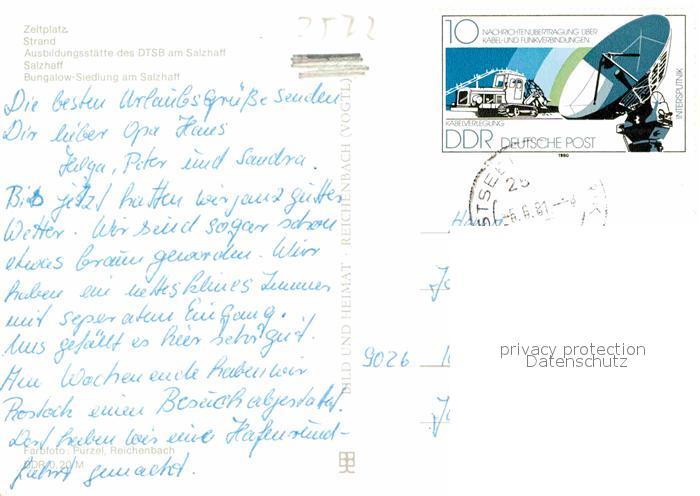 Zeltplatz
Strand
Ausbildungsstätte des DTSB am Salzhaff
Salzhaff
Bungalow-Siedlung am Salzhaff
Die besten Urlaubsgrüße senden
Dir lieber Opa Hans
Helga, Peter und Sandra.
Bis jetzt hatten wir ganz gutes
Wetter. Wir sind sogar schon
etwas braun geworden. Wir
haben ein nettes kleines Zimmer
mit seperatem Eingang.
Uns gefällt es hier sehr gut.
Am Wochenende haben wir
Rostock einen Besuch abgestattet.
Dort haben wir eine Hafenrund-
fahrt gemacht.
Farbfoto: Purzel, Reichenbach
DDR 0,20 M
BILD UND HEIMAT · REICHENBACH (VOGTL)
10 NACHRICHTENÜBERTRAGUNG ÜBER
KABEL-UND FUNKVERBINDUNGEN
INTERSPUTNIK
KABELVERLEGUNG
DDR DEUTSCHE POST
1980
25
-6.6.81
9026
privacy protection
Datenschutz